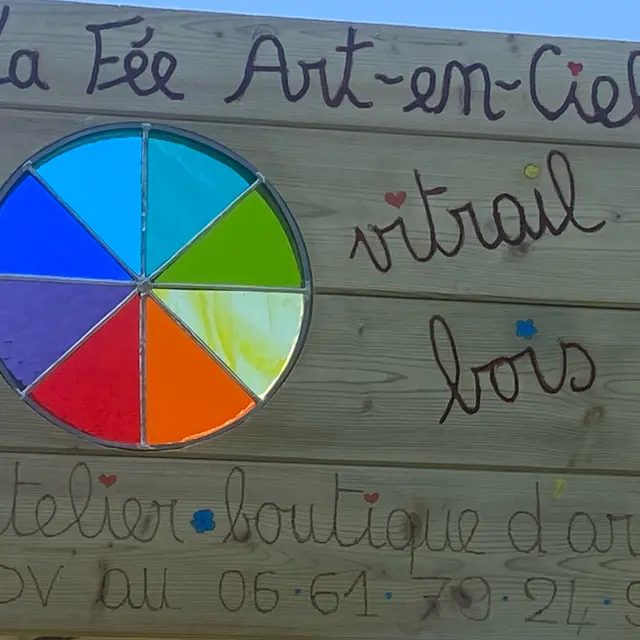 La Fée Art-en-Ciel
vitrail
bois
atelier•boutique d'ar
DV au 06•61•79•24•